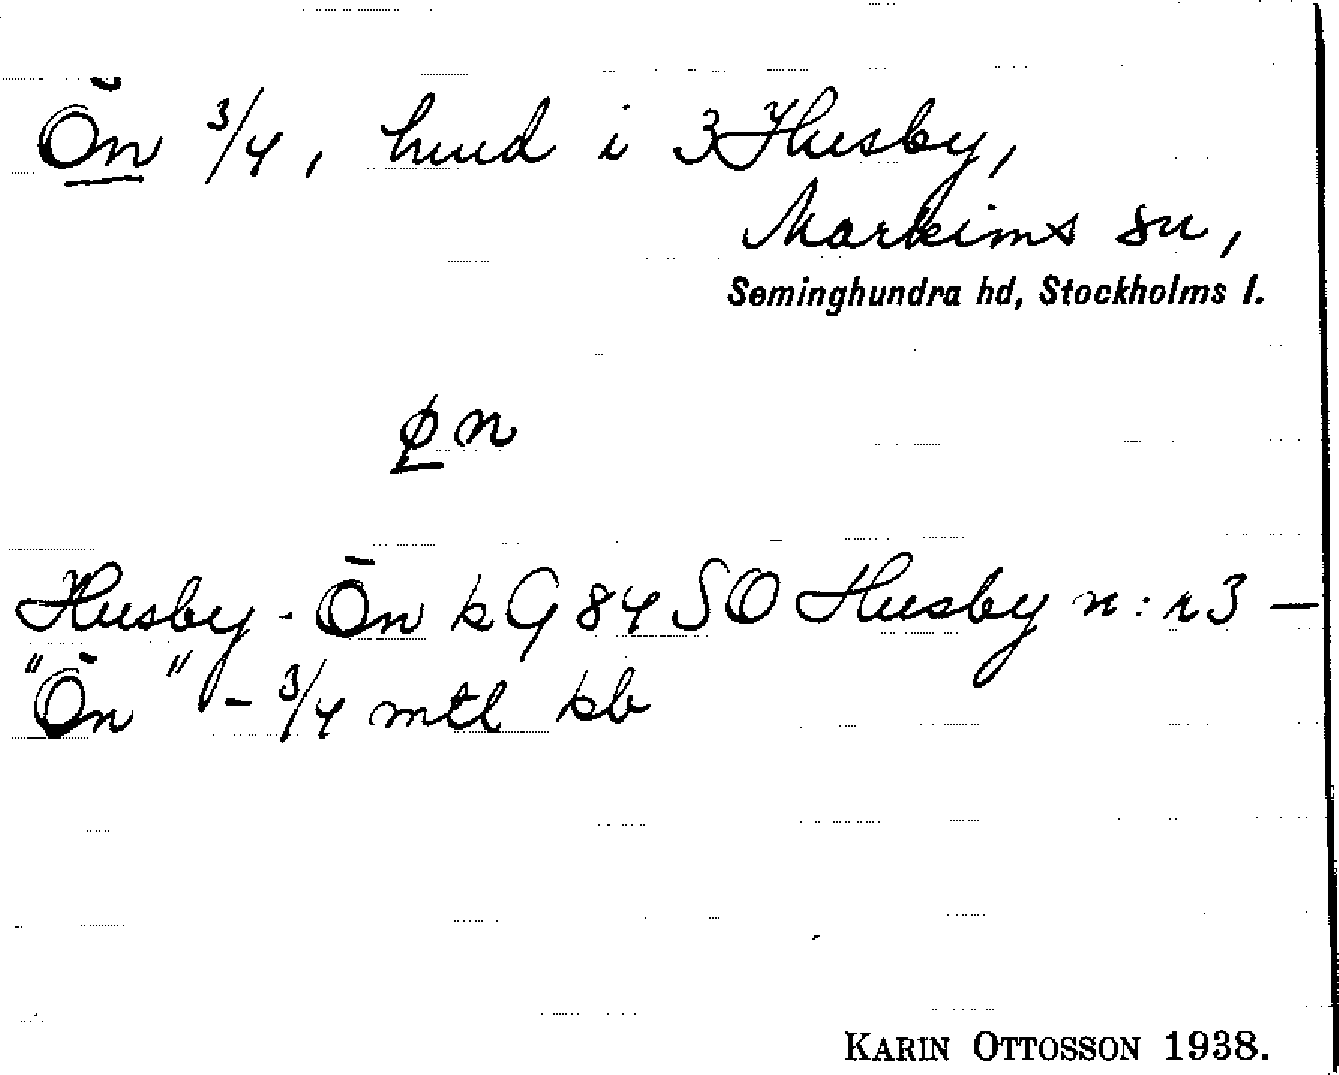 Ön 3/4, hmd i 3 Husby,
Markims sn,
Seminghundra hd, Stockholms l.
øn
Husby - Ön k G 84 SO Husby n:r 3 —
"Ön" - 3/4 mtl kb
KARIN OTTOSSON 1938.